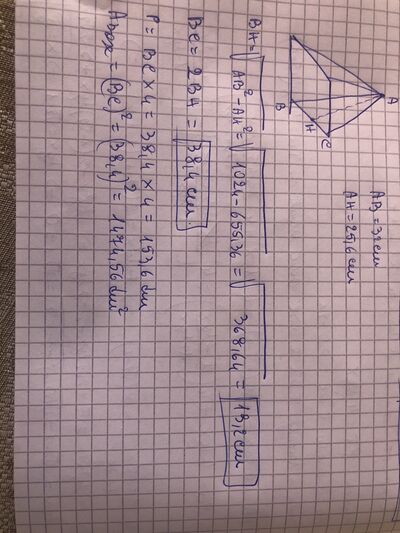 A
B
H
C
AB = 32 cm
AH = 25,6 cm
BH = √AB² - AH² = √1024 - 655,36 = √368,64 = 19,2 cm
BC = 2BH = 38,4 cm
P = BC x 4 = 38,4 x 4 = 153,6 dm
A base = (BC)² = (38,4)² = 1474,56 dm²